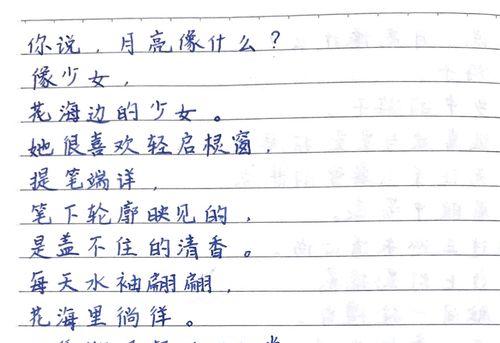 你说，月亮像什么？
像少女，
花海边的少女。
她很喜欢轻启棂窗，
提笔端详，
笔下轮廓映见的，
是盖不住的清香。
每天水袖翩翩，
花海里徜徉。